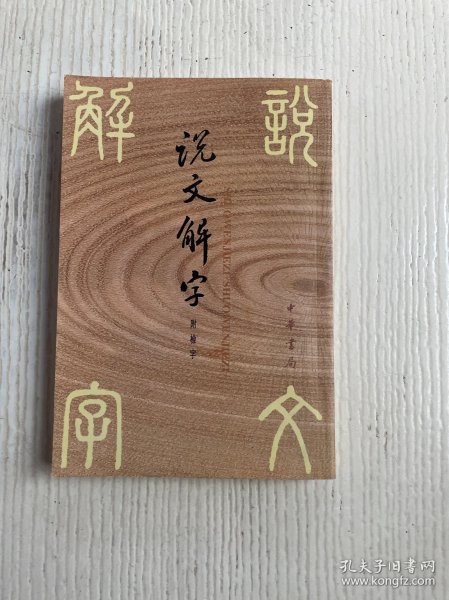 說文
解字
说文解字
附检字
SHUOWENJIEZI SHUOWENJIEZI
中华书局
孔夫子旧书网
www.kongfz.com